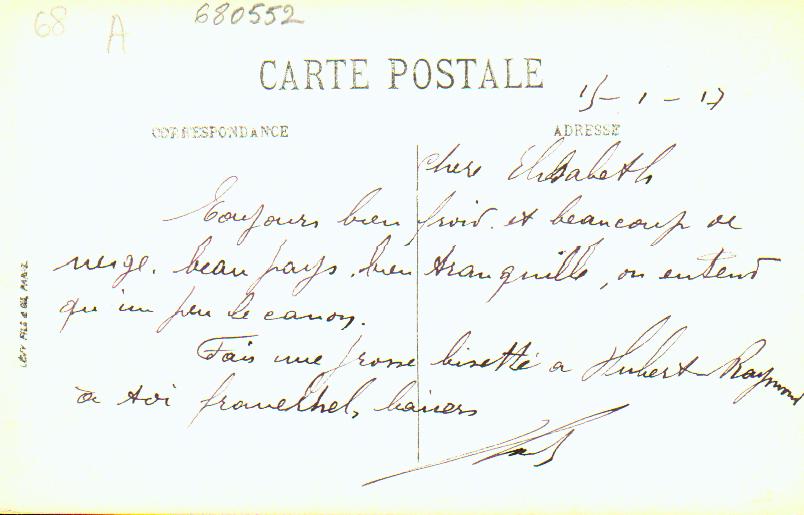 68 A 680552
CARTE POSTALE
15-1-17
CORRESPONDANCE ADRESSE
Chere Elisabeth
Toujours bien froid. et beaucoup de
neige. beau pays. bien tranquille, on entend
qu'un peu le canon.
Fais une grosse bisette a Hubert Raymond
à toi fraternels baisers
LEVY FILS & Cie PARIS